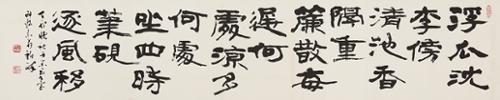 浮瓜沈
李傍
清池香
隔重
簾散每
遲何
處涼多
何處
坐四時
筆硯
逐風移